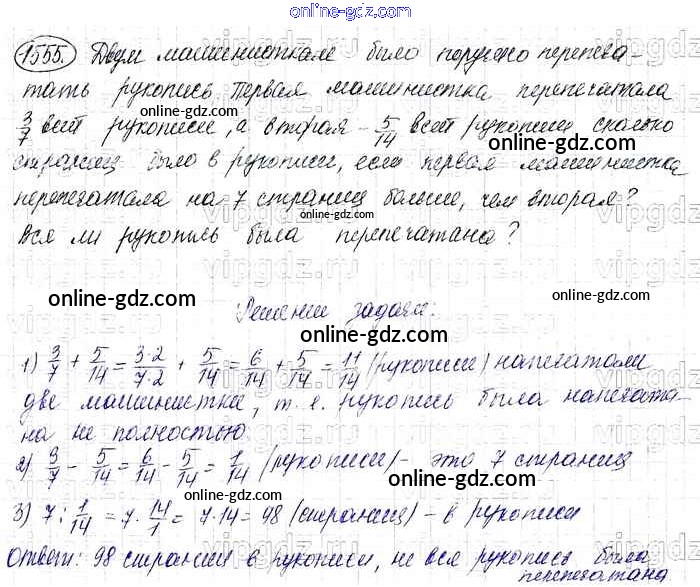 online-gdz.com
1555. Двум машинисткам было поручено перепеча-
online-gdz.com
тать рукопись. Первая машинистка перепечатала
online-gdz.com
3/7 всей рукописи, а вторая - 5/14 всей рукописи сколько
online-gdz.com
страниц было в рукописи, если первая машинистка
перепечатала на 7 страниц больше, чем вторая?
online-gdz.com
Вся ли рукопись была перепечатана?
online-gdz.com
Решение задачи:
online-gdz.com
1) 3/7 + 5/14 = 3·2/7·2 + 5/14 = 6/14 + 5/14 = 11/14 (рукописи) напечатали
online-gdz.com
две машинистки, т. е. рукопись была напечата-
на не полностью.
online-gdz.com
2) 3/7 - 5/14 = 6/14 - 5/14 = 1/14 (рукописи) - это 7 страниц
online-gdz.com
3) 7 : 1/14 = 7 · 14/1 = 7·14 = 98 (страниц) - в рукописи
online-gdz.com
Ответ: 98 страниц в рукописи, не вся рукопись была
перепечатана
online-gdz.com